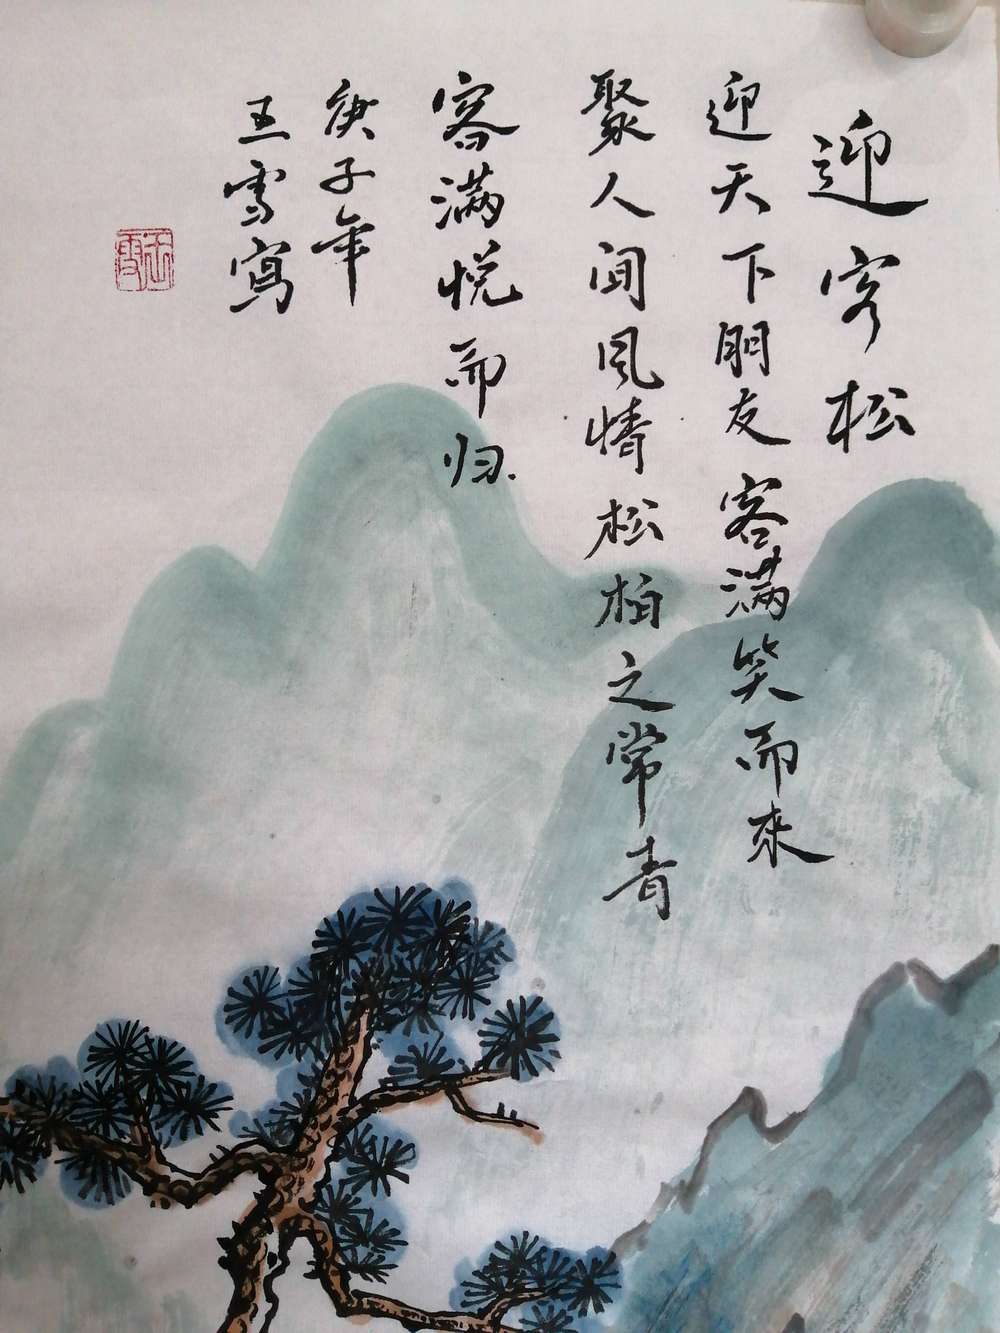 迎客松
迎天下朋友客满笑而來
聚人间风情松柏之常青
客满悦而归
庚子年
王雪寫
王雪